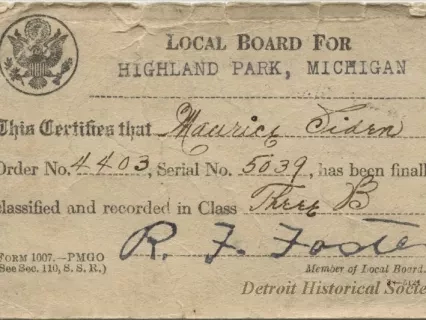 LOCAL BOARD FOR
HIGHLAND PARK, MICHIGAN
This Certifies that Maurice Siden
Order No. 4403, Serial No. 5039, has been finall
classified and recorded in Class Three B
R. F. Foste
FORM 1007.—PMGO
(See Sec. 110, S. S. R.)
Member of Local Board.
Detroit Historical Socie